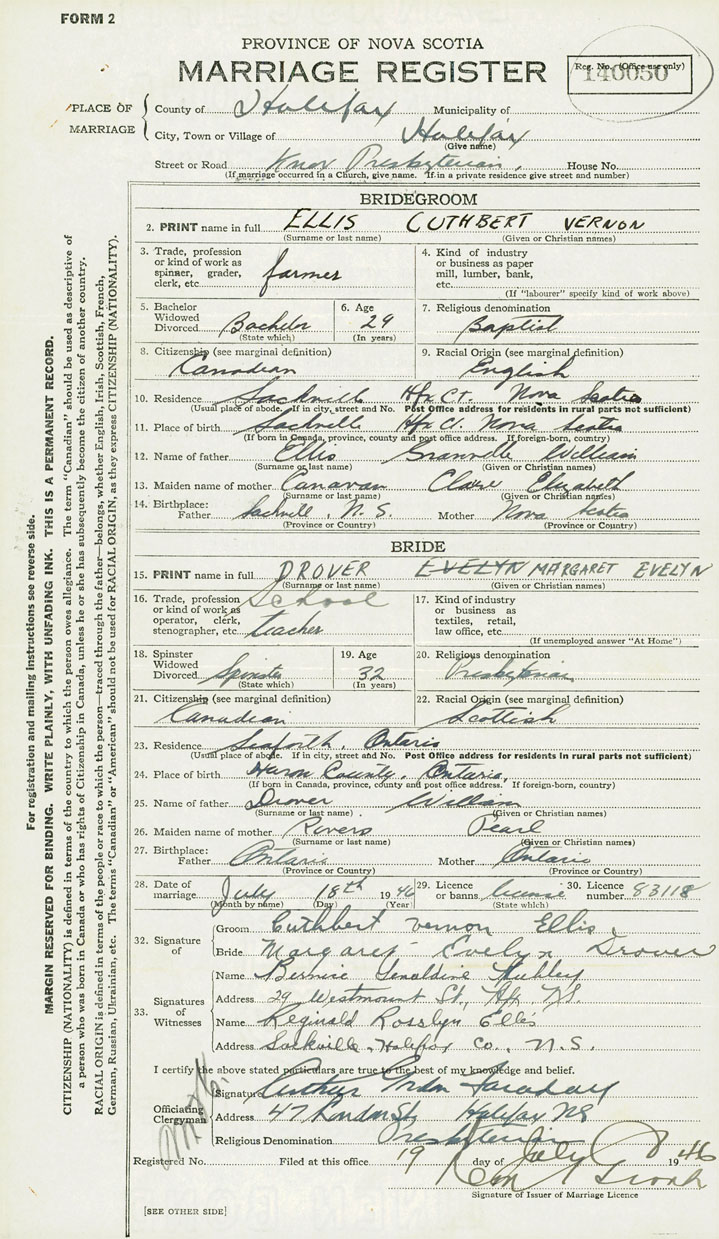 FORM 2
PROVINCE OF NOVA SCOTIA
MARRIAGE REGISTER
Reg. No. (Office use only)
140050
PLACE OF MARRIAGE
County of Halifax Municipality of
City, Town or Village of Halifax
(Give name)
Street or Road Knox Presbyterian, House No.
(If marriage occurred in a Church, give name. If in a private residence give street and number)
BRIDEGROOM
2. PRINT name in full ELLIS CUTHBERT VERNON
(Surname or last name) (Given or Christian names)
3. Trade, profession or kind of work as spinner, grader, clerk, etc. farmer
4. Kind of industry or business as paper mill, lumber, bank, etc.
(If "labourer" specify kind of work above)
5. Bachelor Widowed Divorced Bachelor
(State which)
6. Age 29
(In years)
7. Religious denomination Baptist
8. Citizenship (see marginal definition) Canadian
9. Racial Origin (see marginal definition) English
10. Residence Sackville Hfx Ct. Nova Scotia
(Usual place of abode. If in city, street and No. Post Office address for residents in rural parts not sufficient)
11. Place of birth Sackville Hfx Ct. Nova Scotia
(If born in Canada, province, county and post office address. If foreign-born, country)
12. Name of father Ellis Granville William
(Surname or last name) (Given or Christian names)
13. Maiden name of mother Canavan Elizabeth
(Surname or last name) (Given or Christian names)
14. Birthplace: Father Sackville, N.S. Mother Nova Scotia
(Province or Country) (Province or Country)
BRIDE
15. PRINT name in full DROVER EVELYN MARGARET EVELYN
(Surname or last name) (Given or Christian names)
16. Trade, profession or kind of work as operator, clerk, stenographer, etc. School teacher
17. Kind of industry or business as textiles, retail, law office, etc.
(If unemployed answer "At Home")
18. Spinster Widowed Divorced Spinster
(State which)
19. Age 32
(In years)
20. Religious denomination Presbyterian
21. Citizenship (see marginal definition) Canadian
22. Racial Origin (see marginal definition) Scottish
23. Residence Seaforth, Ontario
(Usual place of abode. If in city, street and No. Post Office address for residents in rural parts not sufficient)
24. Place of birth Huron County, Ontario,
(If born in Canada, province, county and post office address. If foreign-born, country)
25. Name of father Drover William
(Surname or last name) (Given or Christian names)
26. Maiden name of mother Rivers Pearl
(Surname or last name) (Given or Christian names)
27. Birthplace: Father Ontario Mother Ontario
(Province or Country) (Province or Country)
28. Date of marriage July 18th 1946
(Month by name) (Day) (Year)
29. Licence or banns license
(State which)
30. Licence number 83118
32. Signature of
Groom Cuthbert Vernon Ellis
Bride Margaret Evelyn Drover
33. Signatures of Witnesses
Name Bernice Geraldine Hubley
Address 29 Westmount St., Hfx N.S.
Name Reginald Rosslyn Ellis
Address Sackville, Halifax Co., N.S.
I certify the above stated particulars are true to the best of my knowledge and belief.
Officiating Clergyman
Signature Arthur Gordon Faraday
Address 47 London St Halifax NS
Religious Denomination Presbyterian
Registered No. Filed at this office 19 day of July 1946
Signature of Issuer of Marriage Licence
[SEE OTHER SIDE]
For registration and mailing instructions see reverse side.
MARGIN RESERVED FOR BINDING. WRITE PLAINLY, WITH UNFADING INK. THIS IS A PERMANENT RECORD.
CITIZENSHIP (NATIONALITY) is defined in terms of the country to which the person owes allegiance. The term "Canadian" should be used as descriptive of
a person who was born in Canada or who has rights of Citizenship in Canada, unless he or she has subsequently become the citizen of another country.
RACIAL ORIGIN is defined in terms of the people or race to which the person—traced through the father—belongs, whether English, Irish, Scottish, French,
German, Russian, Ukrainian, etc. The terms "Canadian" or "American" should not be used for RACIAL ORIGIN, as they express CITIZENSHIP (NATIONALITY).